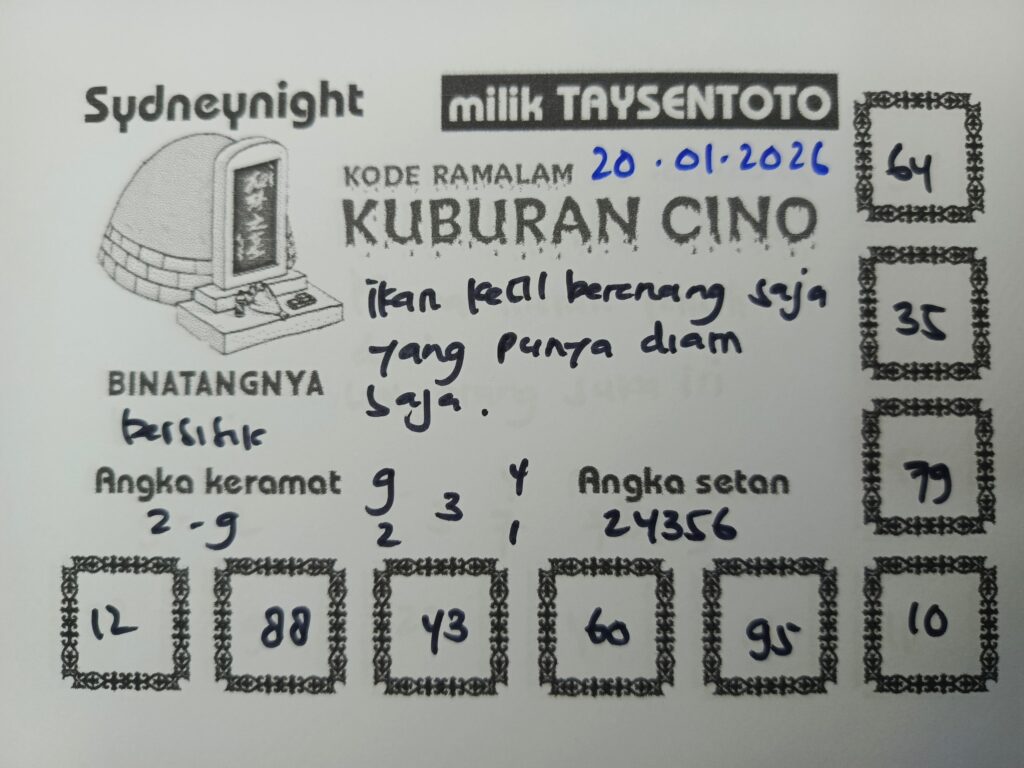 Sydneynight
milik TAYSENTOTO
KODE RAMALAM 20.01.2026
KUBURAN CINO
ikan kecil berenang saja
yang punya diam
saja.
BINATANGNYA
bersisik
Angka keramat
2-9
9 4
3
2 1
Angka setan
24356
64
35
79
12 88 43 60 95 10